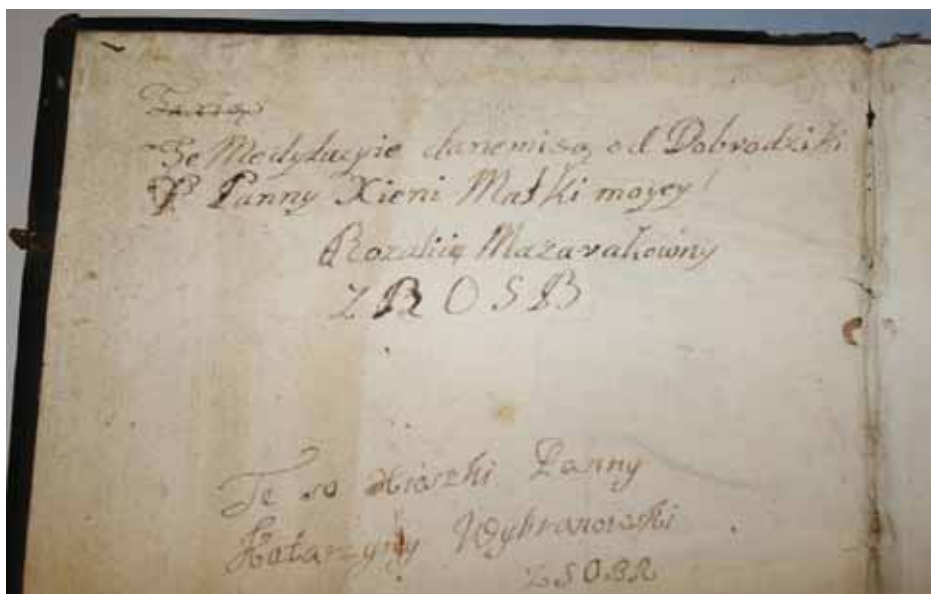 Te Medytacyie danemisą od Dobrodziki
P Panny Xieni Matki moyey
Rozalię Mazarakowny
Z R O S B
Te so xiaszki Panny
Katarzyny Wybranowski
ZSOBR